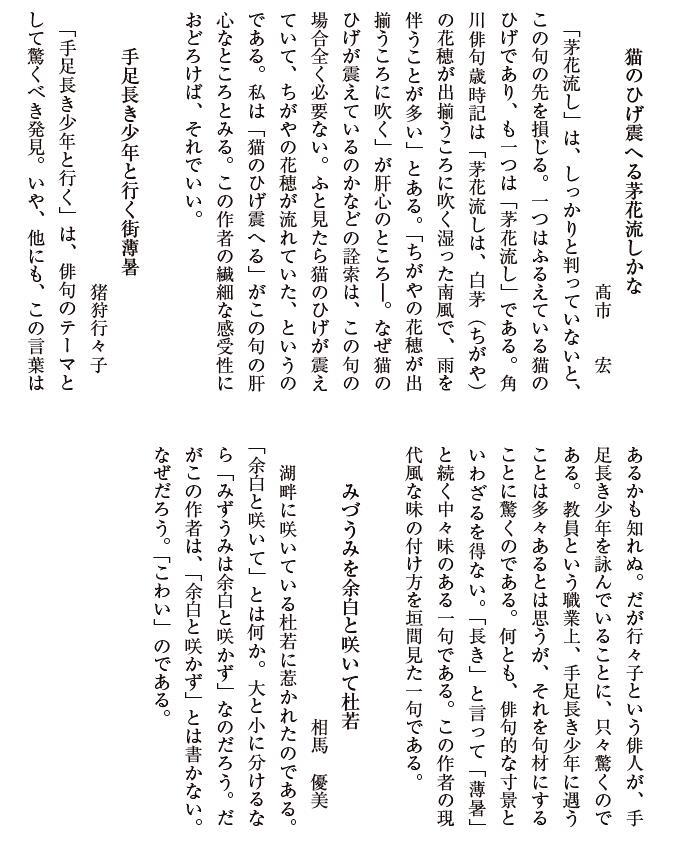 猫のひげ震へる茅花流しかな
髙市　宏
「茅花流し」は、しっかりと判っていないと、
この句の先を損じる。一つはふるえている猫の
ひげであり、も一つは「茅花流し」である。角
川俳句歳時記は「茅花流しは、白茅（ちがや）
の花穂が出揃うころに吹く湿った南風で、雨を
伴うことが多い」とある。「ちがやの花穂が出
揃うころに吹く」が肝心のところ―。なぜ猫の
ひげが震えているのかなどの詮索は、この句の
場合全く必要ない。ふと見たら猫のひげが震え
ていて、ちがやの花穂が流れていた、というの
である。私は「猫のひげ震へる」がこの句の肝
心なところとみる。この作者の繊細な感受性に
おどろけば、それでいい。
手足長き少年と行く街薄暑
猪狩行々子
「手足長き少年と行く」は、俳句のテーマと
して驚くべき発見。いや、他にも、この言葉は
あるかも知れぬ。だが行々子という俳人が、手
足長き少年を詠んでいることに、只々驚くので
ある。教員という職業上、手足長き少年に遇う
ことは多々あるとは思うが、それを句材にする
ことに驚くのである。何とも、俳句的な寸景と
いわざるを得ない。「長き」と言って「薄暑」
と続く中々味のある一句である。この作者の現
代風な味の付け方を垣間見た一句である。
みづうみを余白と咲いて杜若
相馬　優美
湖畔に咲いている杜若に惹かれたのである。
「余白と咲いて」とは何か。大と小に分けるな
ら「みずうみは余白と咲かず」なのだろう。だ
がこの作者は、「余白と咲かず」とは書かない。
なぜだろう。「こわい」のである。